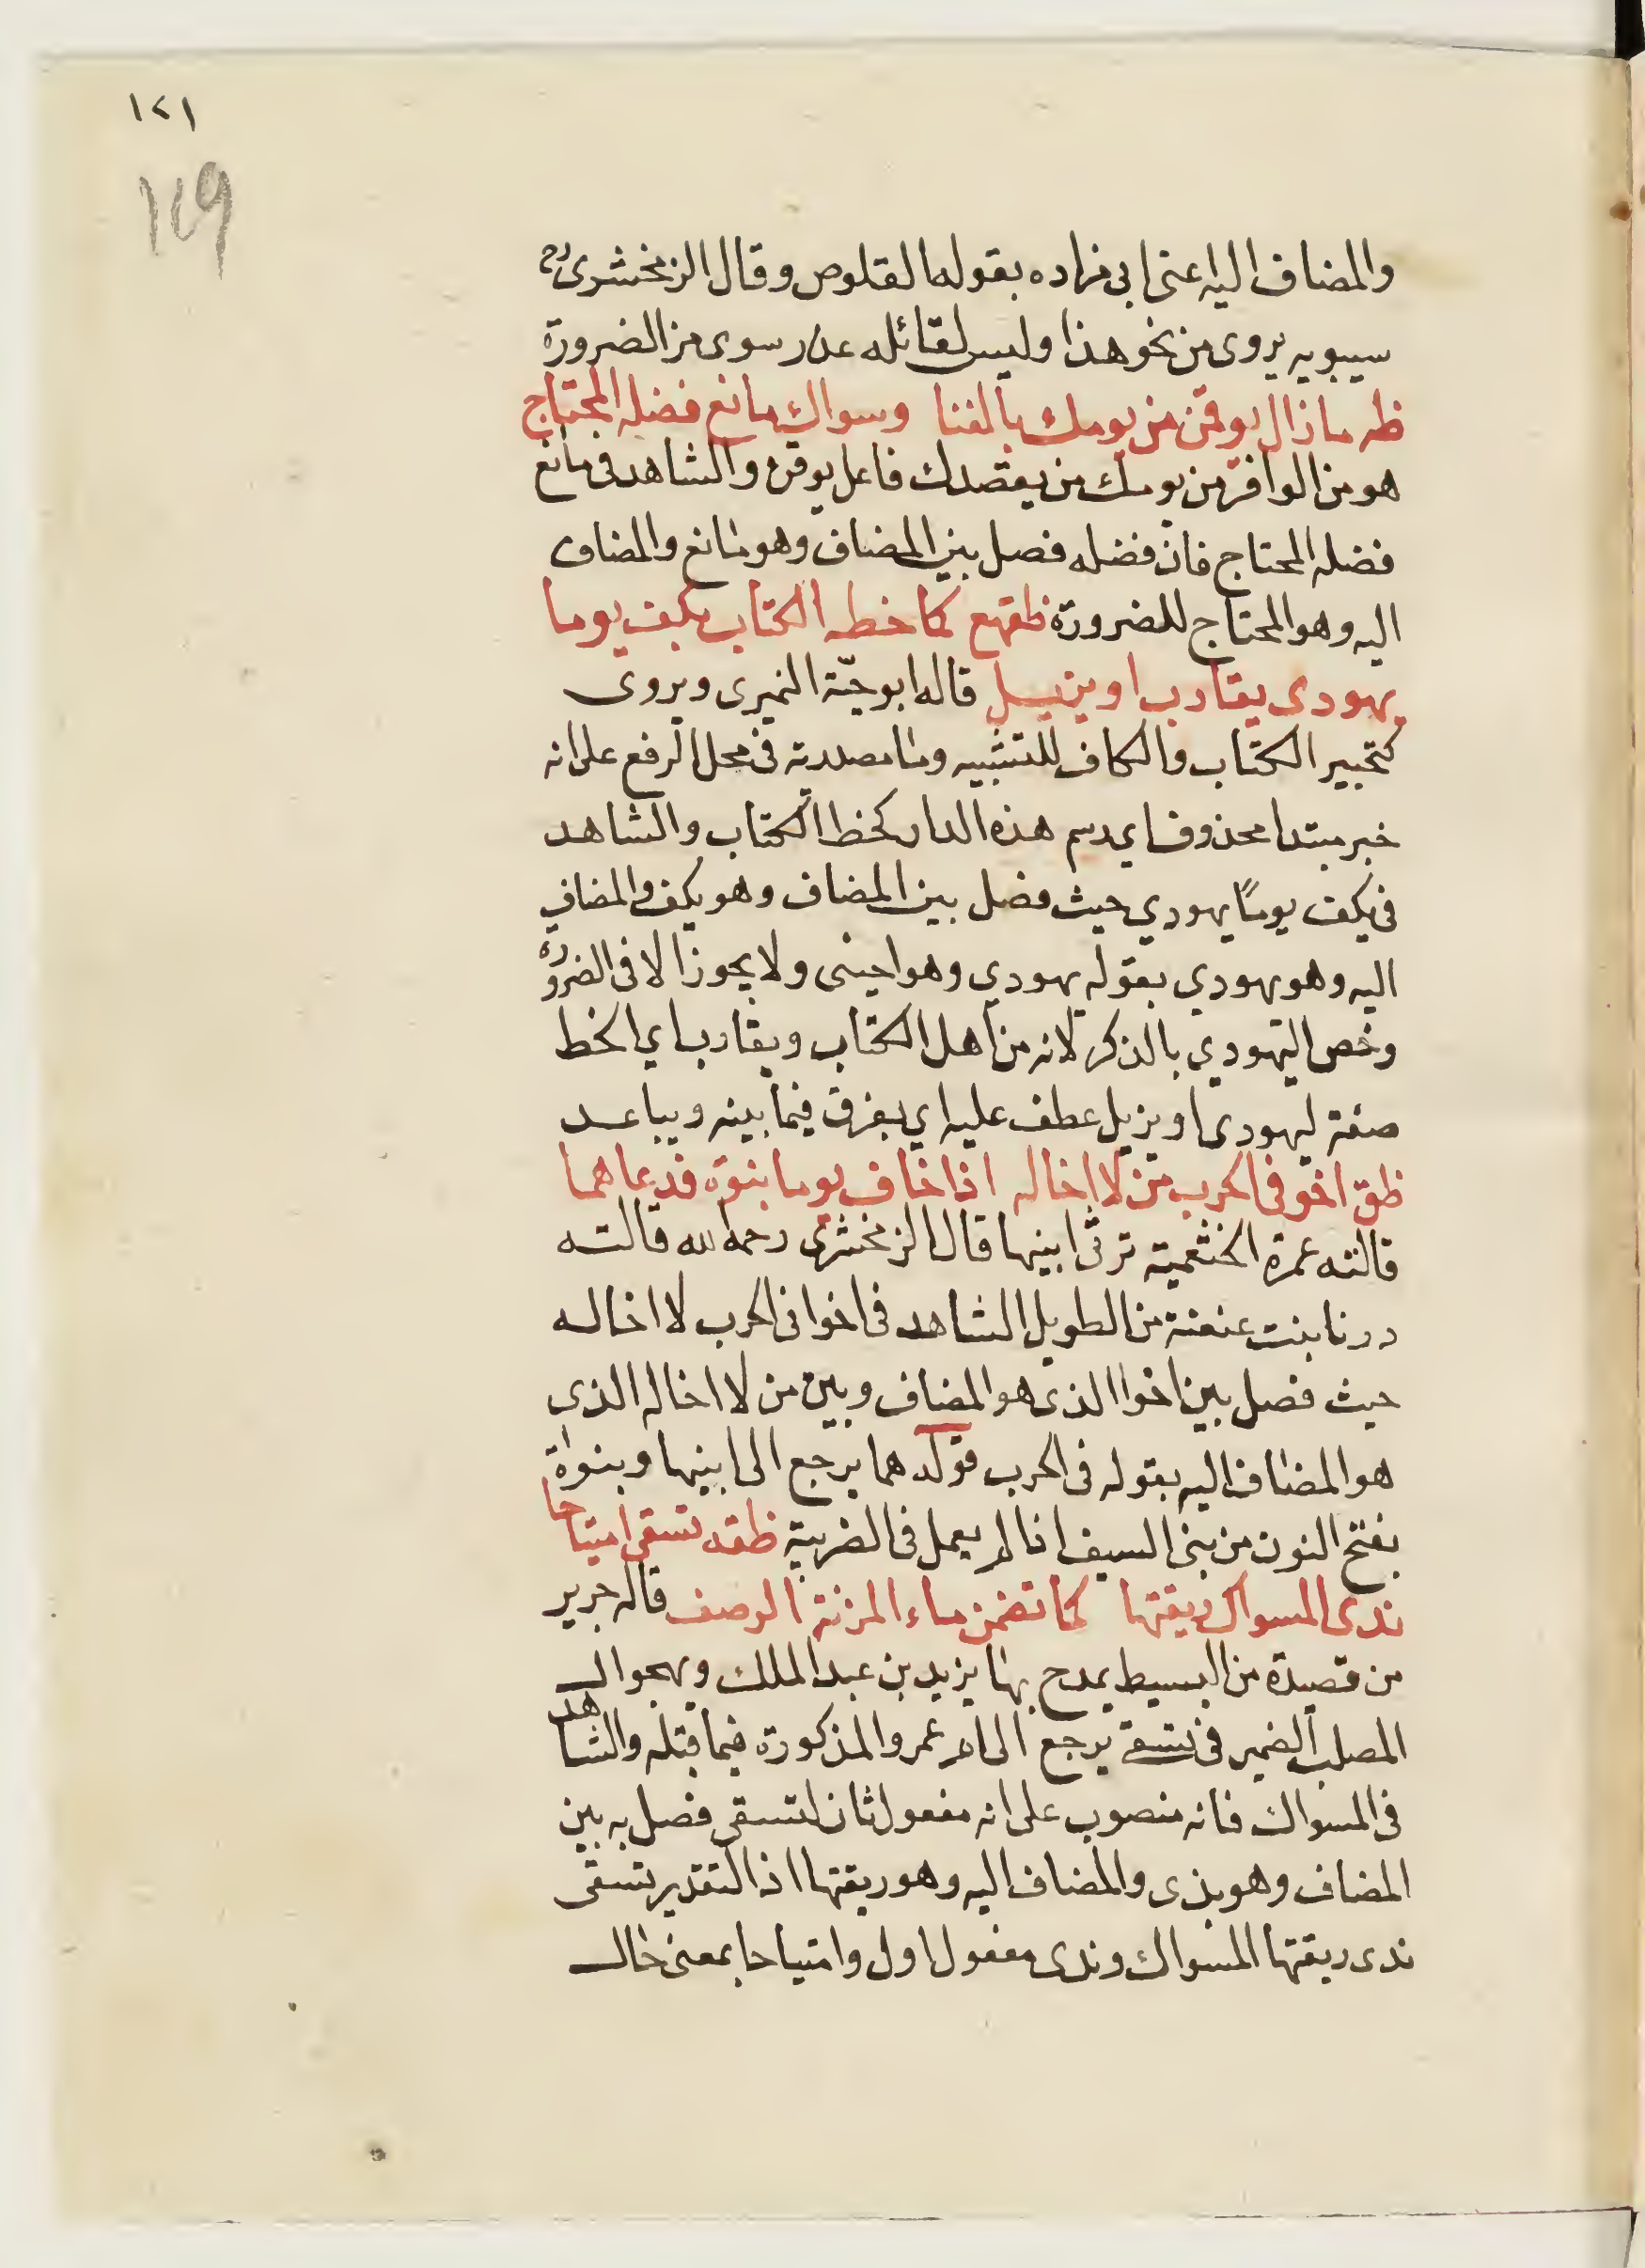 ١٢١
١٢٩
والمضاف اليه اعنى ابى مزاده بقوله القلوص وقال الزمخشرى
سيبويه يروى من نحو هذا وليس لقائله عذر سوى من الضرورة
ظه ما زال يوقن من يومك بالغنا وسواك مانع فضله المحتاج
هو من الوافر من يومك من يقصدك فاعل يوقن والشاهد فى مانع
فضله المحتاج فان فضله فصل بين المضاف وهو مانع والمضاف
اليه وهو المحتاج للضرورة ظقهع كما خط الكتاب بكف يوما
يهودى يقارب او يزيل قاله ابو حيّة النميرى ويروى
كتحبير الكتاب والكاف للتشبيه وما مصدرية فى محل الرفع على انه
خبر مبتدا محذوف اى رسم هذه الدار كخط الكتاب والشاهد
فى بكف يومًا يهودي حيث فصل بين المضاف وهو بكف والمضاف
اليه وهو يهودي بقوله يهودي وهو اجنبى ولا يجوز الا فى الضرورة
وخص اليهودي بالذكر لانه من اهل الكتاب ويقارب اي الخط
صفة ليهودى او يزيل عطف عليه اي يفرق فيما بينه ويباعد
ظق اخو فى الحرب من لا اخا له اذا خاف يوما بنوة فدعاهما
قالته عمرة الخثعمية ترثى ابنيها قال الزمخشرى رحمه الله قالته
درنا بنت عنعنة من الطويل الشاهد فى اخوا فى الحرب لا اخا له
حيث فصل بين اخوا الذى هو المضاف وبين من لا اخا له الذى
هو المضاف اليه بقوله فى الحرب قوله هما يرجع الى ابنيها وبنوة
بفتح النون من بنى السيف اذا لم يعمل فى الضريبة ظقه تسقى امتياحا
ندى المسواك ريقتها كما تضمن ماء المزنة الرصف قاله جرير
من قصيدة من البسيط يمدح بها يزيد بن عبد الملك ويهجو ال
المصلب الضمير فى تسقى يرجع الى ام عمرو المذكورة فيما قبله والشاهد
فى المسواك فانه منصوب على انه مفعول ثان لتسقى فصل به بين
المضاف وهو بذى والمضاف اليه وهو ريقتها اذ التقدير تسقى
ندى ريقتها المسواك وندى مفعول اول وامتياحا بمعنى خال